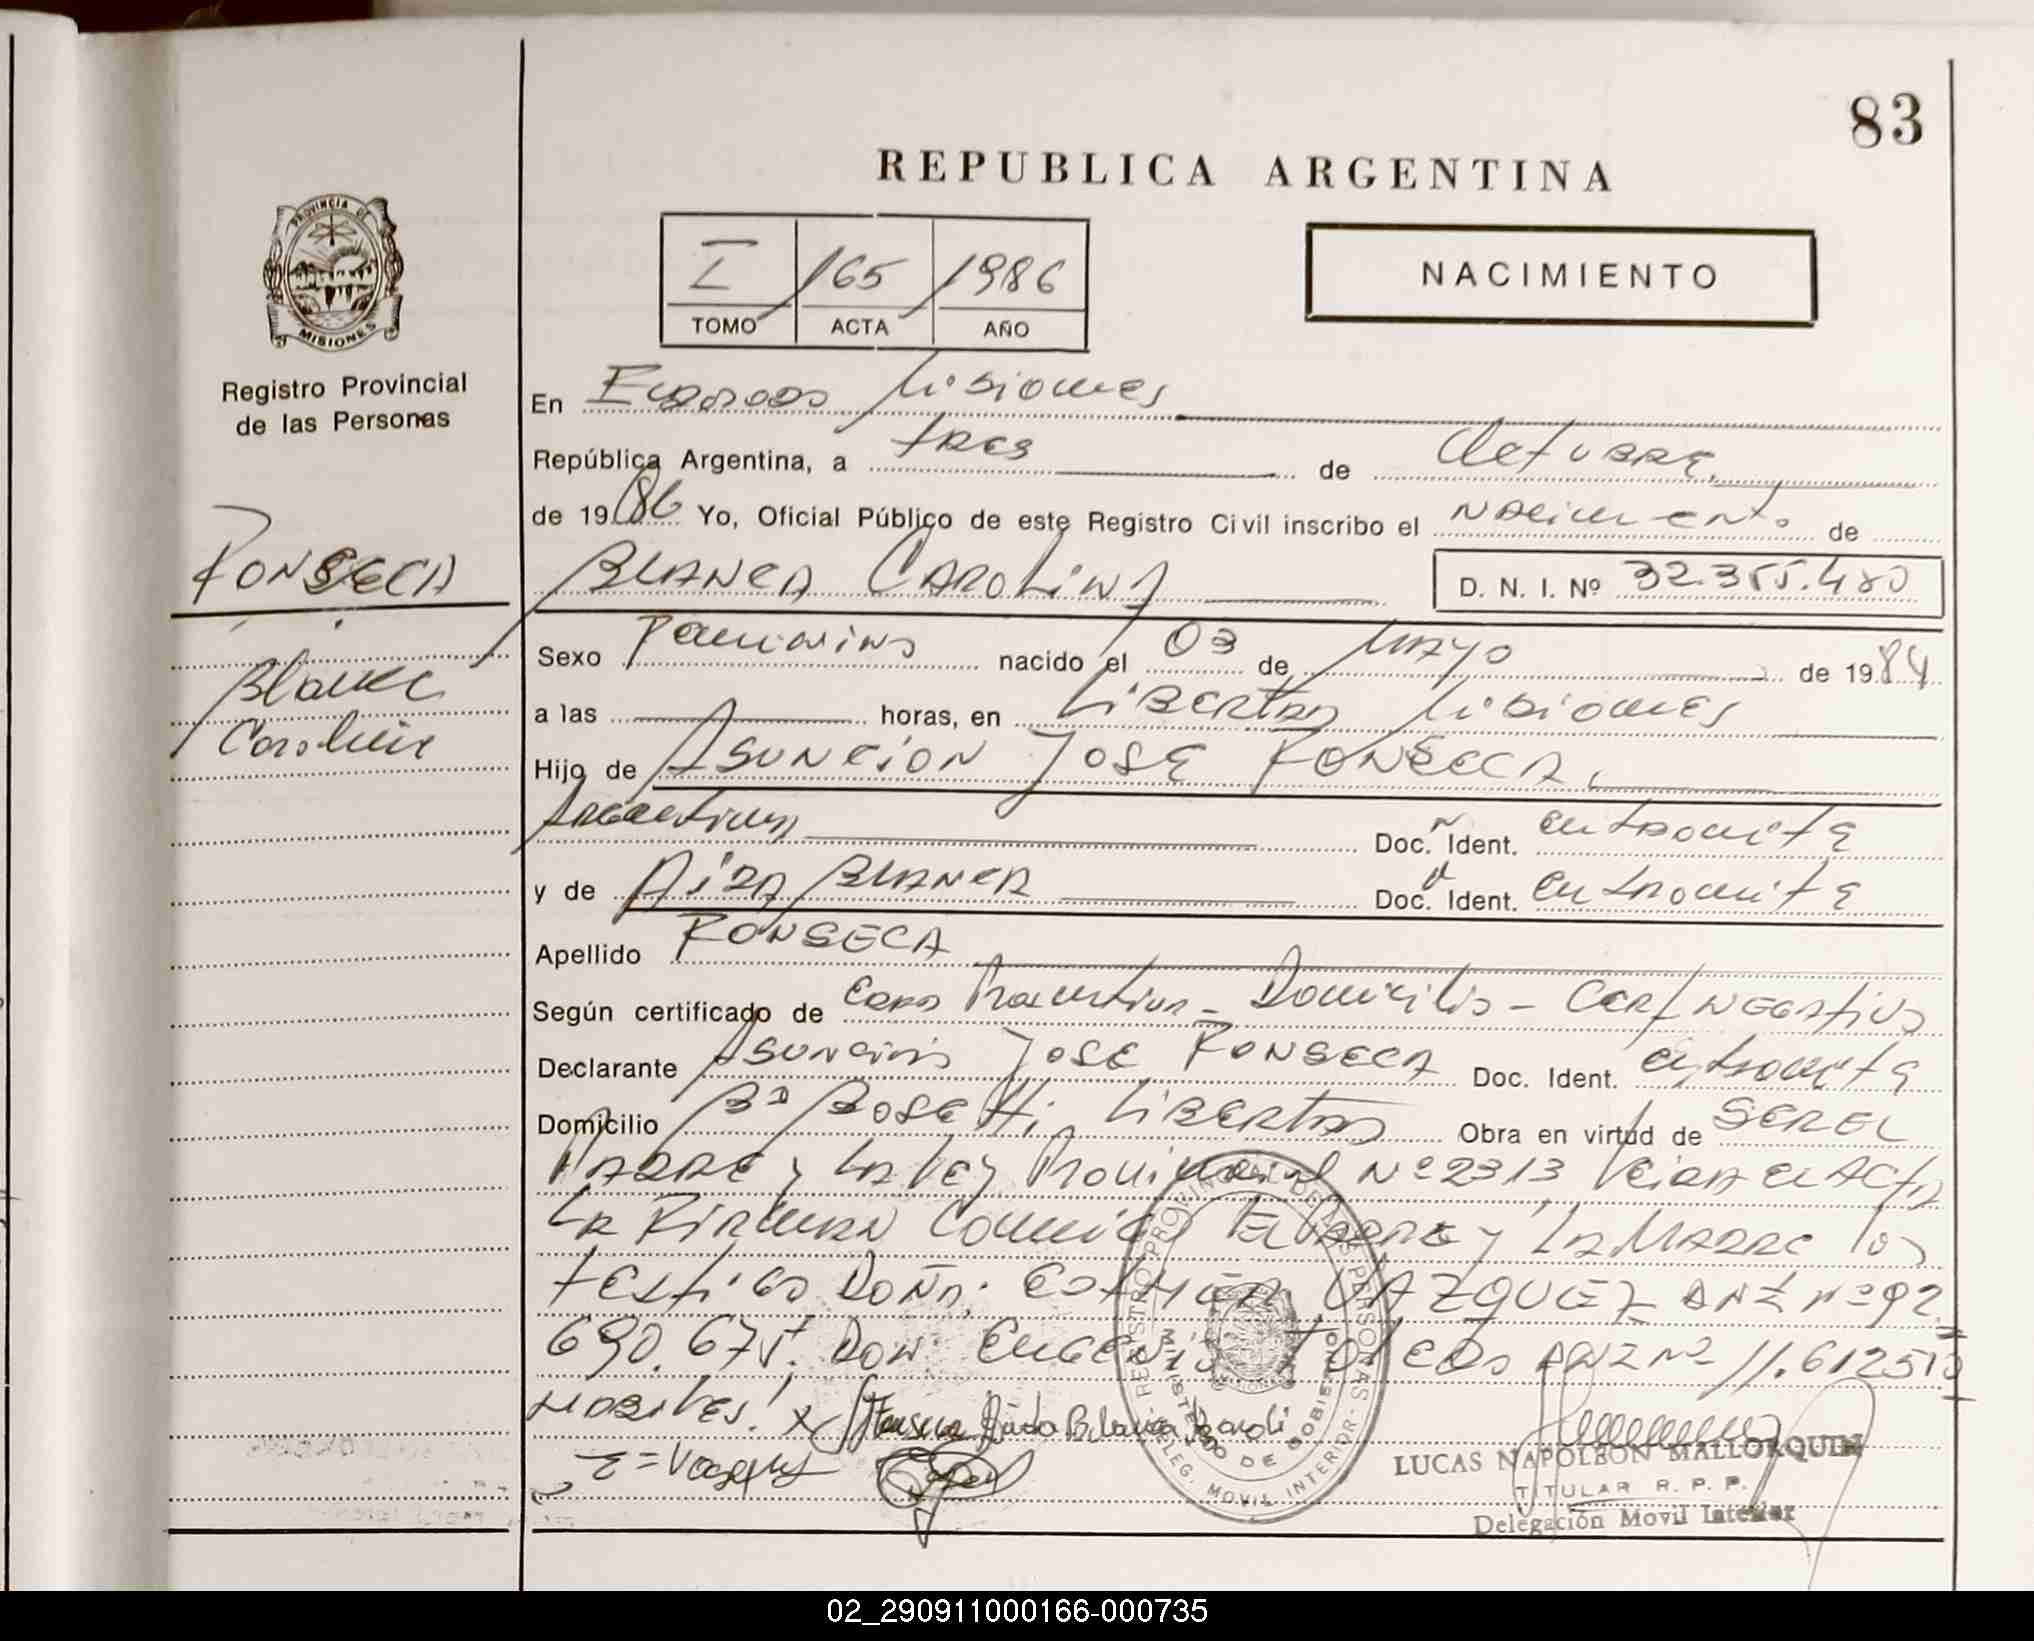 83
REPUBLICA ARGENTINA
I 165 1986
TOMO ACTA AÑO
NACIMIENTO
PROVINCIA DE MISIONES
Registro Provincial
de las Personas
En Eldorado Misiones
República Argentina, a tres de Octubre
de 1986 Yo, Oficial Público de este Registro Civil inscribo el nacimiento de
FONSECA
BLANCA CAROLINA D. N. I. Nº 32.355.480
Blanca
Carolina
Sexo Femenino nacido el 03 de Mayo de 1984
a las horas, en LIBERTAD Misiones
Hijo de ASUNCION JOSE FONSECA,
Argentina Doc. Ident. en tramite
y de BLANCA Doc. Ident. en tramite
Apellido FONSECA
Según certificado de Domicilio - CERT NEGATIVO
Declarante ASUNCION JOSE FONSECA Doc. Ident. en tramite
Domicilio Bº Bosetti LIBERTAD Obra en virtud de SER EL
PADRE y LA LEY Provincial Nº 2313, Leida el ACTA
LA FIRMAN Conmigo El PADRE y LA MADRE los
testigos Doña VAZQUEZ DNI nº 92.
690.675. Don Eugenio DNI Nº 11.612513
HABILES!
Blanca
E = Vazquez
REGISTRO PROVINCIAL DE LAS PERSONAS - DELEG. MOVIL INTERIOR -
MINISTERIO DE GOBIERNO
MISIONES
LUCAS NAPOLEON MALLORQUIN
TITULAR R. P. P.
Delegación Movil Interior
02_290911000166-000735